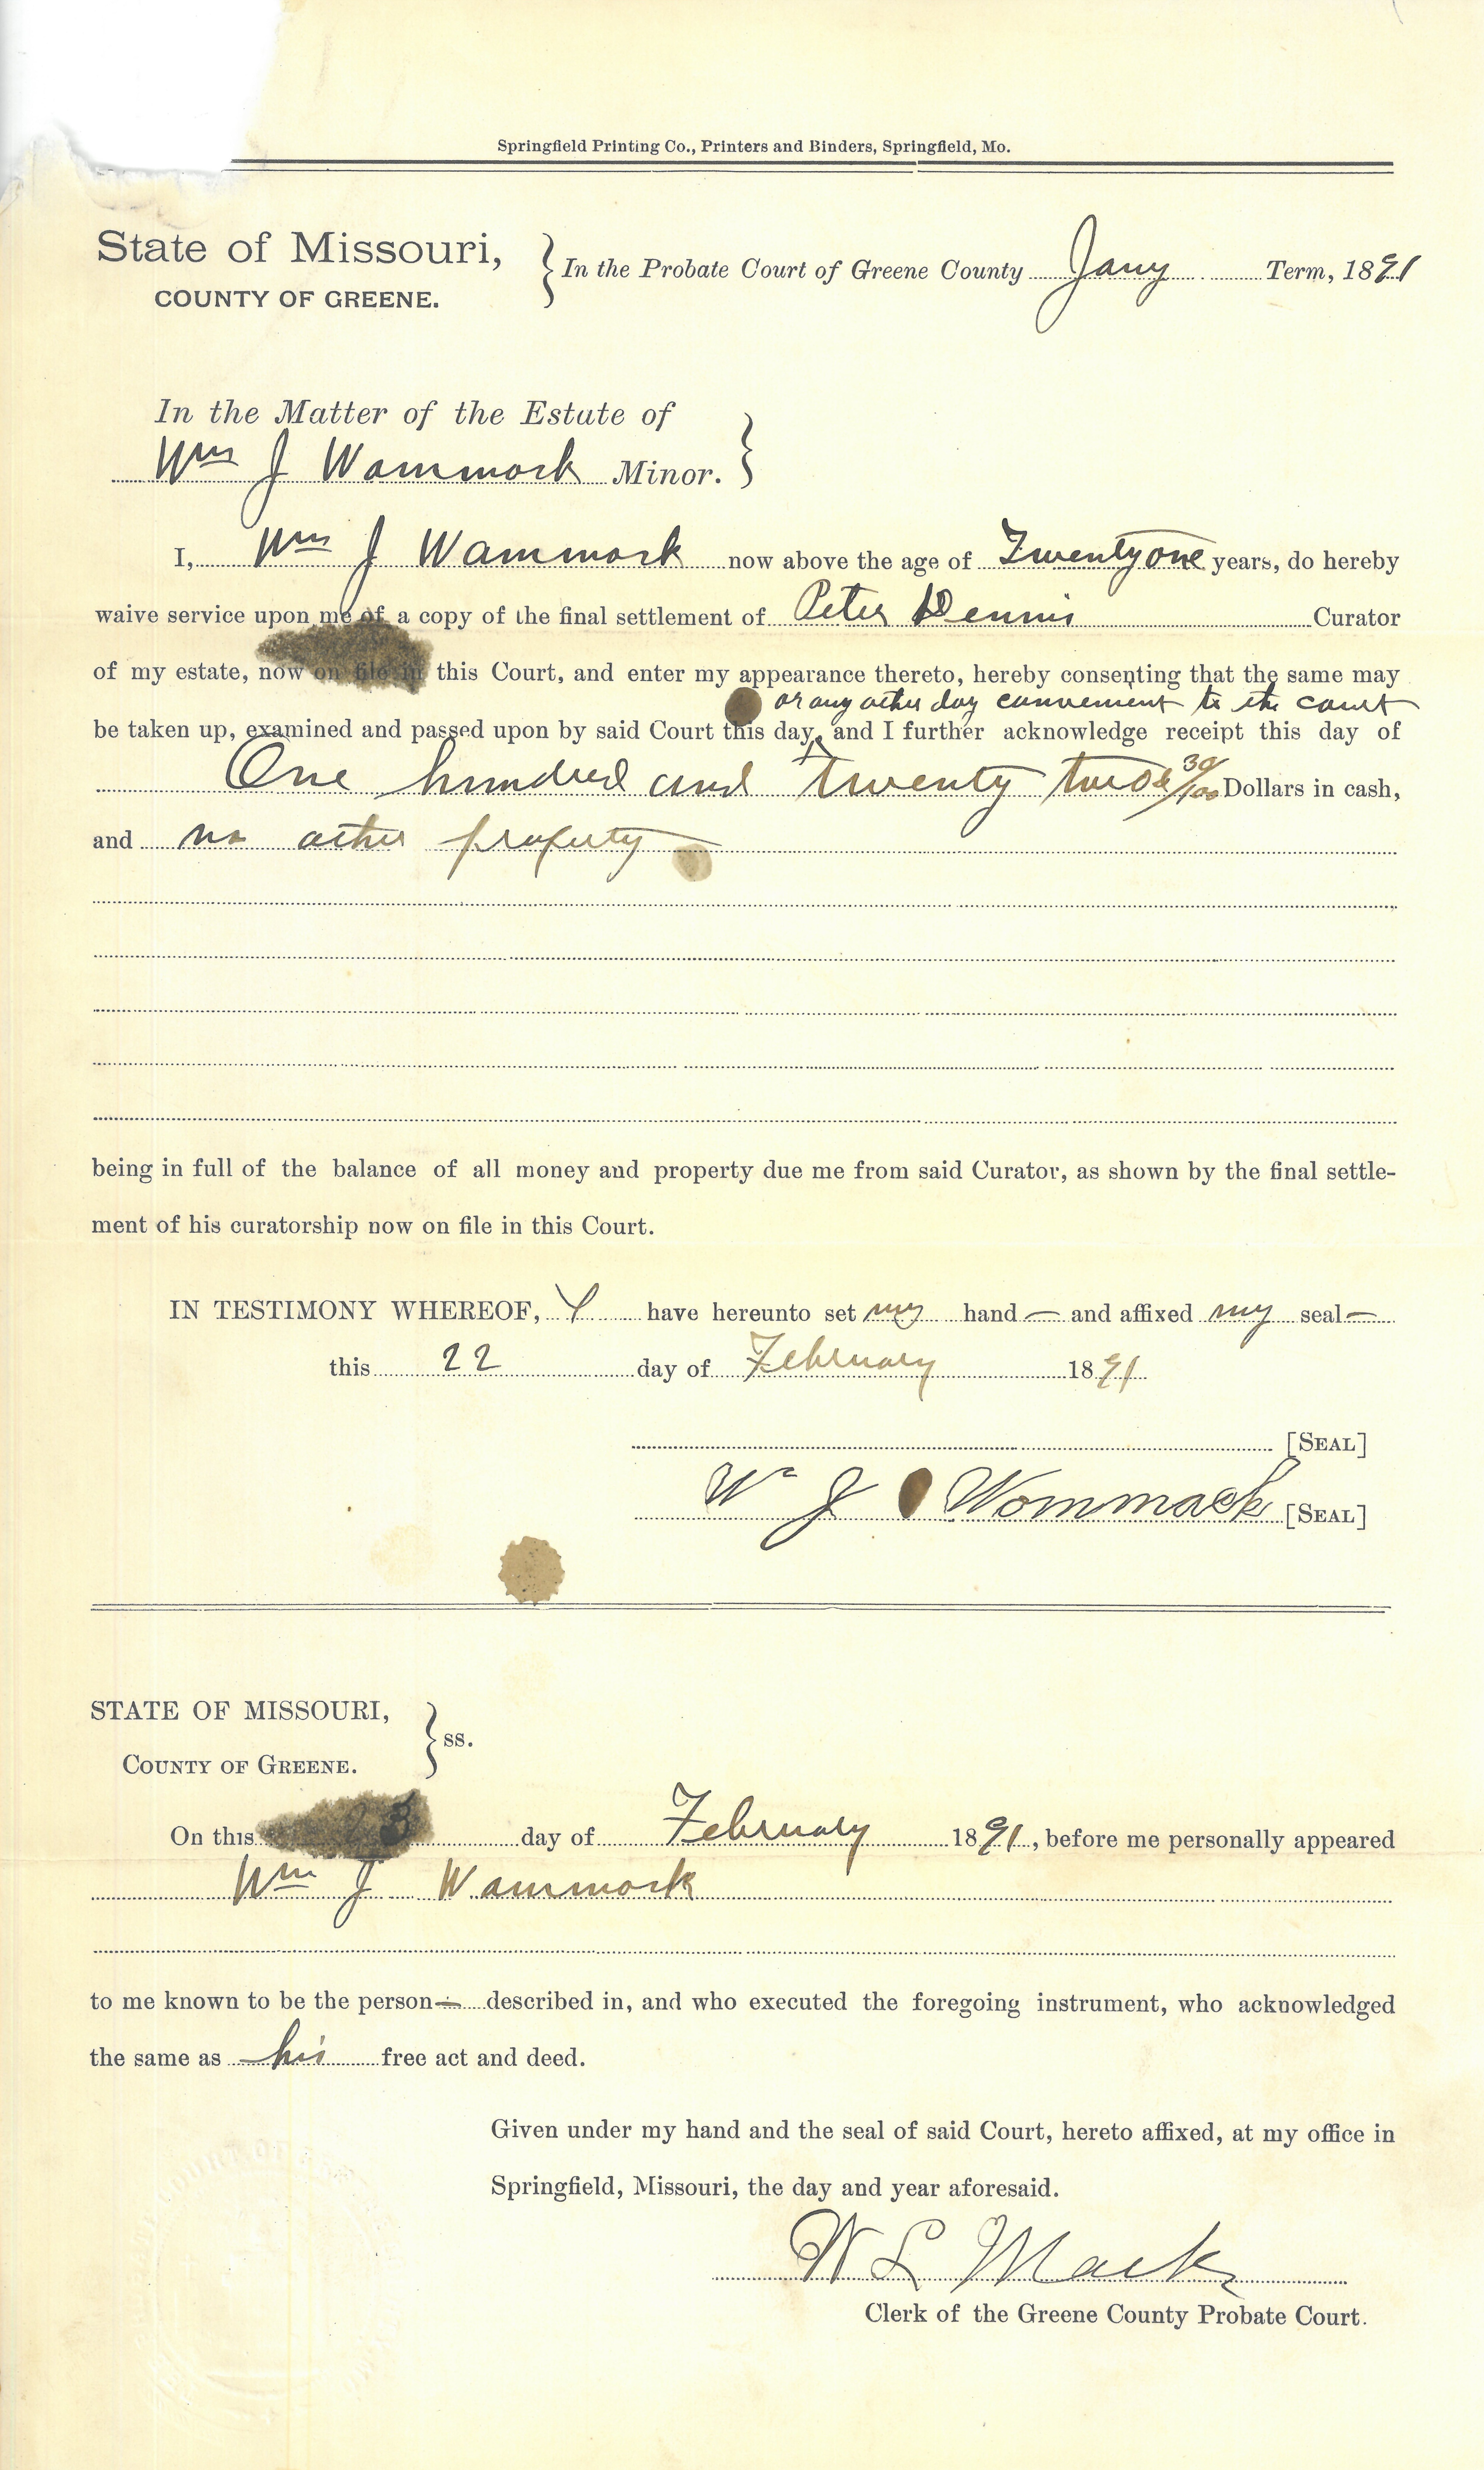 Springfield Printing Co., Printers and Binders, Springfield, Mo.
State of Missouri,
COUNTY OF GREENE.
In the Probate Court of Greene County Jany Term, 1891
In the Matter of the Estate of
Wm J Wammock Minor.
I, Wm J Wammock now above the age of Twenty one years, do hereby
waive service upon me of a copy of the final settlement of Peter Dennis Curator
of my estate, now on file in this Court, and enter my appearance thereto, hereby consenting that the same may
or any other day convenient to the court
be taken up, examined and passed upon by said Court this day, and I further acknowledge receipt this day of
One hundred and twenty two & 30/100 Dollars in cash,
and no other property
being in full of the balance of all money and property due me from said Curator, as shown by the final settle-
ment of his curatorship now on file in this Court.
IN TESTIMONY WHEREOF, I have hereunto set my hand — and affixed my seal —
this 22 day of February 1891
[SEAL]
Wm J Wommack [SEAL]
STATE OF MISSOURI,
COUNTY OF GREENE.
ss.
On this 23 day of February 1891, before me personally appeared
Wm J Wammock
to me known to be the person — described in, and who executed the foregoing instrument, who acknowledged
the same as his free act and deed.
Given under my hand and the seal of said Court, hereto affixed, at my office in
Springfield, Missouri, the day and year aforesaid.
W L Mack
Clerk of the Greene County Probate Court.